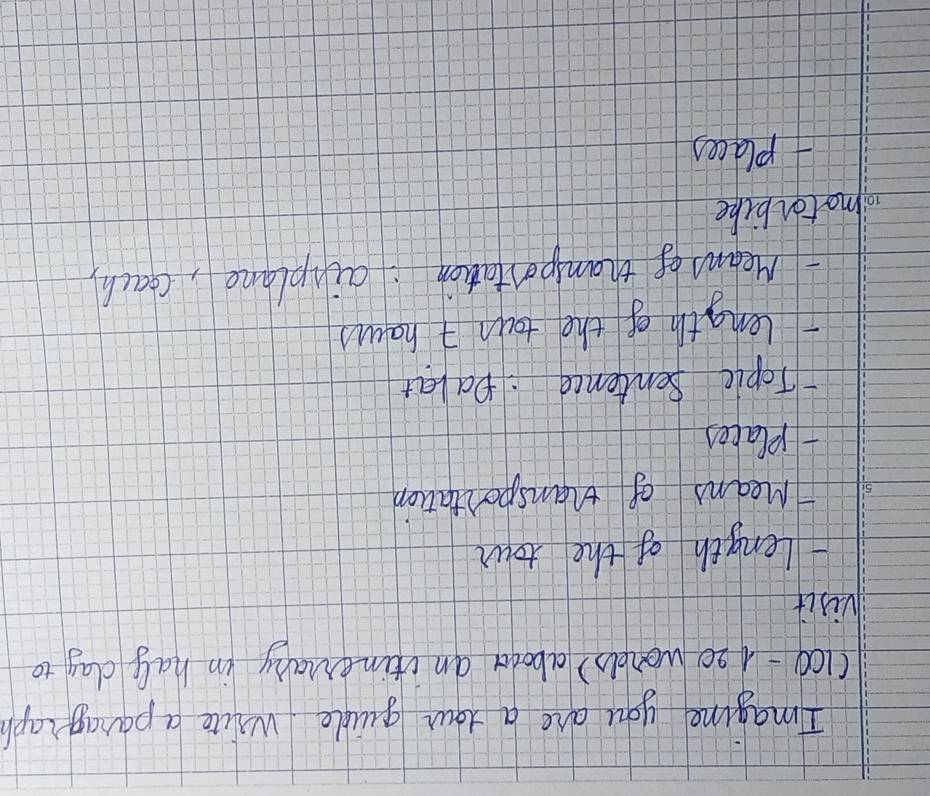 Imagine you are a tour guide. Write a paragraph
(100 - 120 words) about an itinerary in half day to
visit
- Length of the tour
- Means of transportation
- Places
- Topic Sentence : Dalat
- Length of the tour 7 hours
- Means of transportation : airplane, coach,
motorbike
- Places
5
10